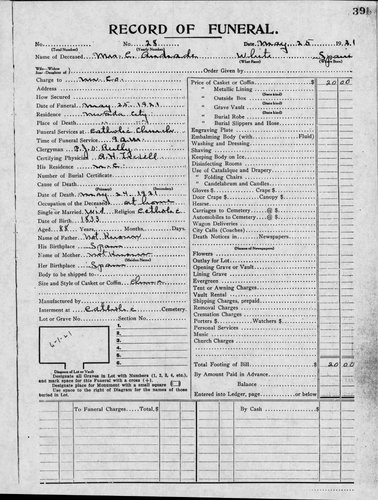 391
RECORD OF FUNERAL.
No. (Total Number) No. 28 (Yearly Number) Date May 25 1921
Name of Deceased Mrs. C. Andrade White (What Race) Spain (Where Born)
Wife—Widow
Son (Daughter) of Order Given by
Charge to
Address
How Secured
Date of Funeral May 25 1921
Residence
Place of Death
Funeral Services at Catholic Church
Time of Funeral Service 9 a.m.
Clergyman
Certifying Physician
His Residence
Number of Burial Certificate
Cause of Death (Primary)
Date of Death May 24 1921
Occupation of the Deceased at home
Single or Married Wid. Religion Catholic
Date of Birth 1833
Aged 88 Years, Months, Days
Name of Father Not Known
His Birthplace Spain
Name of Mother Not Known (Maiden Name)
Her Birthplace Spain
Body to be shipped to
Size and Style of Casket or Coffin
Manufactured by
Interment at Catholic Cemetery.
Lot or Grave No. Section No.
1.
2.
3.
4.
5.
6.
Diagram of Lot or Vault
Designate all Graves in Lot with Numbers (1, 2, 3, 4, etc.),
and mark space for this Funeral with a cross (+).
Designate place for Monument with a small square
Use space to right of Diagram for the names of those
buried in Lot.
Price of Casket or Coffin $ 20 00
" Metallic Lining
" Outside Box (State kind)
" Grave Vault (State kind)
" Burial Robe (State kind)
" Burial Slippers and Hose
Engraving Plate
Embalming Body (with Fluid)
Washing and Dressing
Shaving
Keeping Body on Ice
Disinfecting Rooms
Use of Catafalque and Drapery
" Folding Chairs
" Candelabrum and Candles
Gloves $ Crape $
Door Crape $ Canopy $
Hearse
Carriages to Cemetery @ $
Automobiles to Cemetery @ $
Wagon Deliveries
City Calls (Coaches)
Death Notices in Newspapers
(Names of Newspapers)
Flowers
Outlay for Lot
Opening Grave or Vault
Lining Grave
Evergreen
Tent or Awning Charges
Vault Rental
Shipping Charges, prepaid
Removal Charges
Cremation Charges
Porters $ Watchers $
Personal Services
Music
Church Charges
Total Footing of Bill $ 20 00
By Amount Paid in Advance
Balance
Entered into Ledger, page or below.
To Funeral Charges Total, $ By Cash $